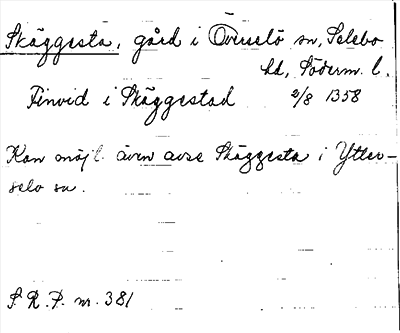 Skäggesta, gård i Överselö sn, Selebo
hd, Söderm. l.
Finvid i Skäggestad 2/8 1358
Kan möjl. även avse Skäggesta i Ytter-
selo sn.
S. R. P. nr. 381